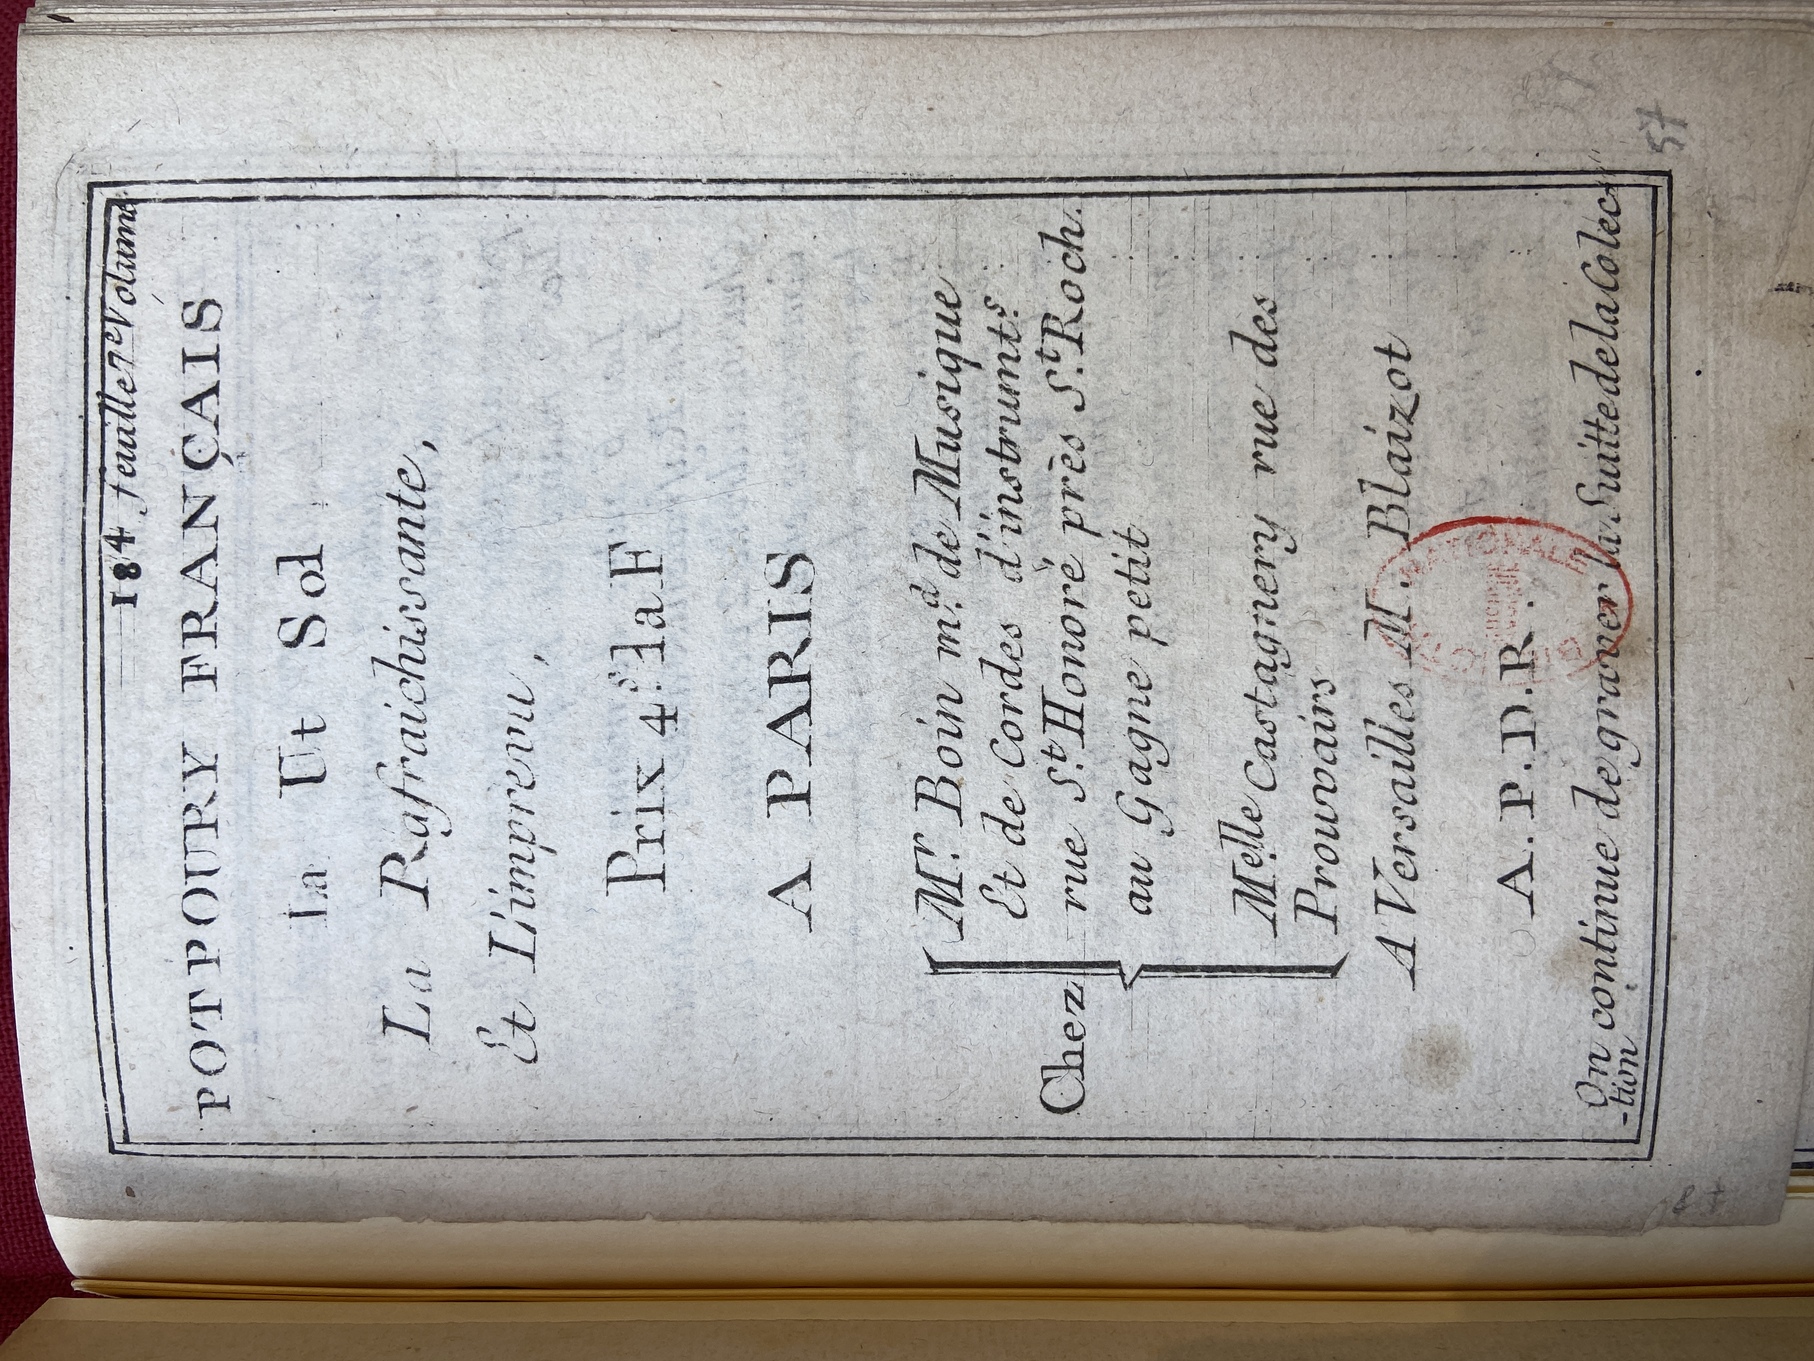 184 feuille 7e Volume
POTPOURY FRANÇAIS
La Ut Sol
La Rafraichissante,
Et L'imprevu,
Prix 4.s la F
A PARIS
Chez
Mr. Boüin md. de Musique
Et de Cordes d'instrumts.
rue St. Honoré près St. Roch.
au Gagne petit
Melle Castagnery rue des
Prouvairs
A Versailles M. Blaizot
A.P.D.R.
On continue de graver la Suitte de la Colec
-tion
57